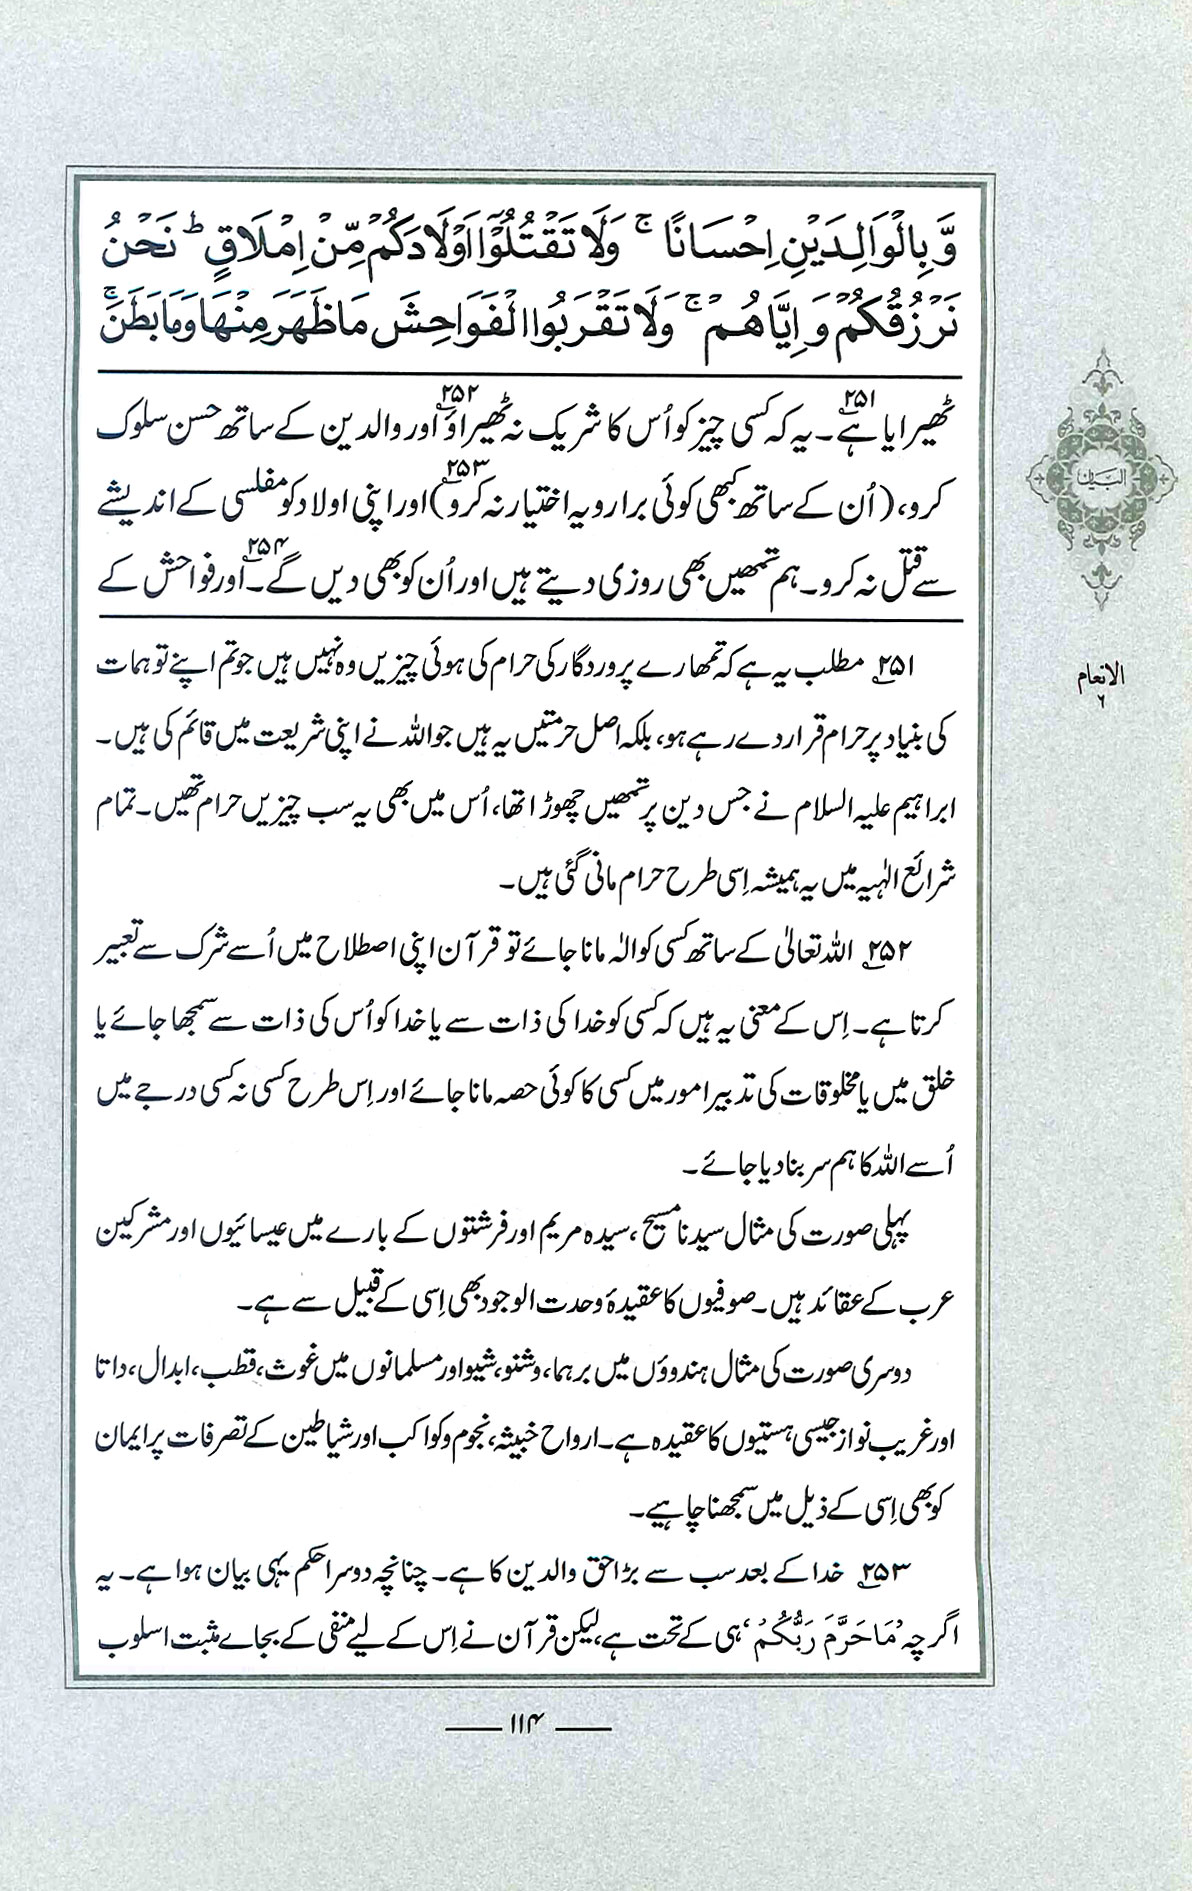 وَّ بِالْوَالِدَيْنِ اِحْسَانًا ۚ وَلَا تَقْتُلُوْٓا اَوْلَادَكُمْ مِّنْ اِمْلَاقٍ ؕ نَحْنُ
نَرْزُقُكُمْ وَ اِيَّاهُمْ ۚ وَلَا تَقْرَبُوا الْفَوَاحِشَ مَا ظَهَرَ مِنْهَا وَمَا بَطَنَ ۚ
ٹھیرایا ہے۔۲۵۱ یہ کہ کسی چیز کو اُس کا شریک نہ ٹھیراؤ۲۵۲ اور والدین کے ساتھ حسن سلوک
کرو، (اُن کے ساتھ کبھی کوئی برا رویہ اختیار نہ کرو)۲۵۳ اور اپنی اولاد کو مفلسی کے اندیشے
سے قتل نہ کرو۔ ہم تمھیں بھی روزی دیتے ہیں اور اُن کو بھی دیں گے۔۲۵۴ اور فواحش کے
۲۵۱ مطلب یہ ہے کہ تمھارے پروردگار کی حرام کی ہوئی چیزیں وہ نہیں ہیں جو تم اپنے توہمات
کی بنیاد پر حرام قرار دے رہے ہو، بلکہ اصل حرمتیں یہ ہیں جو اللہ نے اپنی شریعت میں قائم کی ہیں۔
ابراہیم علیہ السلام نے جس دین پر تمھیں چھوڑا تھا، اُس میں بھی یہ سب چیزیں حرام تھیں۔ تمام
شرائع الٰہیہ میں یہ ہمیشہ اِسی طرح حرام مانی گئی ہیں۔
۲۵۲ اللہ تعالیٰ کے ساتھ کسی کو الٰہ مانا جائے تو قرآن اپنی اصطلاح میں اُسے شرک سے تعبیر
کرتا ہے۔ اِس کے معنی یہ ہیں کہ کسی کو خدا کی ذات سے یا خدا کو اُس کی ذات سے سمجھا جائے یا
خلق میں یا مخلوقات کی تدبیر امور میں کسی کا کوئی حصہ مانا جائے اور اِس طرح کسی نہ کسی درجے میں
اُسے اللہ کا ہم سر بنا دیا جائے۔
پہلی صورت کی مثال سیدنا مسیح، سیدہ مریم اور فرشتوں کے بارے میں عیسائیوں اور مشرکین
عرب کے عقائد ہیں۔ صوفیوں کا عقیدۂ وحدت الوجود بھی اِسی کے قبیل سے ہے۔
دوسری صورت کی مثال ہندوؤں میں برہما، وشنو، شیو اور مسلمانوں میں غوث، قطب، ابدال، داتا
اور غریب نواز جیسی ہستیوں کا عقیدہ ہے۔ ارواح خبیثہ، نجوم و کواکب اور شیاطین کے تصرفات پر ایمان
کو بھی اِسی کے ذیل میں سمجھنا چاہیے۔
۲۵۳ خدا کے بعد سب سے بڑا حق والدین کا ہے۔ چنانچہ دوسرا حکم یہی بیان ہوا ہے۔ یہ
اگرچہ 'مَا حَرَّمَ رَبُّكُمْ' ہی کے تحت ہے، لیکن قرآن نے اِس کے لیے منفی کے بجاے مثبت اسلوب
البیان
الانعام
۶
۱۱۴